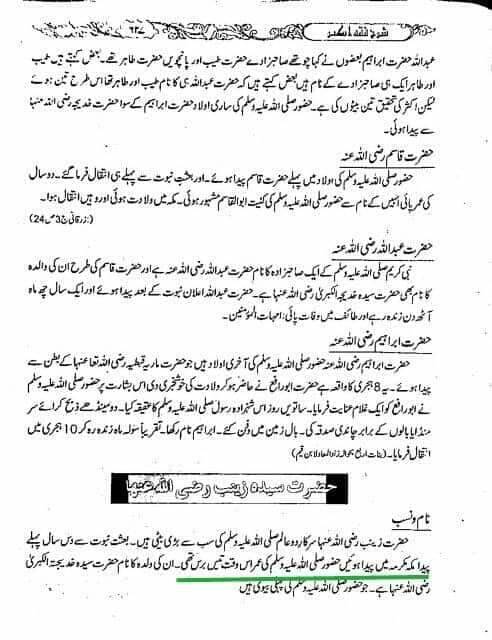 شرح فقہ اکبر ۲۴۷
عبداللہ حضرت ابراہیم بعضوں نے کہا چوتھے صاحبزادے حضرت طیب اور پانچویں حضرت طاہر تھے۔ بعض کہتے ہیں طیب
اور طاہر ایک ہی صاحبزادے کے نام ہیں بعض کہتے ہیں کہ حضرت عبداللہ ہی کا نام طیب اور طاہر تھا اس طرح تین ہوئے
لیکن اکثر کی تحقیق تین بیٹوں کی ہے۔ حضور صلی اللہ علیہ وسلم کی ساری اولاد حضرت ابراہیم کے سوا حضرت خدیجہ رضی اللہ عنہا
سے پیدا ہوئی۔
حضرت قاسم رضی اللہ عنہ
حضور صلی اللہ علیہ وسلم کی اولاد میں پہلے حضرت قاسم پیدا ہوئے۔ اور بعثت نبوت سے پہلے ہی انتقال فرما گئے۔ دو سال
کی عمر پائی انہیں کے نام سے حضور صلی اللہ علیہ وسلم کی کنیت ابوالقاسم مشہور ہوئی۔ مکہ میں ولادت ہوئی اور وہیں انتقال ہوا۔
(زرقانی ج 3 ص 24)
حضرت عبداللہ رضی اللہ عنہ
نبی کریم صلی اللہ علیہ وسلم کے ایک صاحبزادہ کا نام حضرت عبداللہ رضی اللہ عنہ ہے اور حضرت قاسم کی طرح ان کی والدہ
کا نام بھی حضرت سیدہ خدیجۃ الکبریٰ رضی اللہ عنہا ہے۔ حضرت عبداللہ اعلان نبوت کے بعد پیدا ہوئے اور ایک سال چھ ماہ
آٹھ دن زندہ رہے اور طائف میں وفات پائی: امہات المؤمنین۔
حضرت ابراہیم رضی اللہ عنہ
حضرت ابراہیم رضی اللہ عنہ حضور صلی اللہ علیہ وسلم کی آخری اولاد ہیں جو حضرت ماریہ قبطیہ رضی اللہ تعا عنہا کے بطن سے
پیدا ہوئے۔ یہ 8 ہجری کا واقعہ ہے حضرت ابورافع نے حاضر ہو کر ولادت کی خوشخبری دی اس بشارت پر حضور صلی اللہ علیہ وسلم
نے ابو رافع کو ایک غلام عنایت فرمایا۔ ساتویں روز اس شہزادہ رسول صلی اللہ علیہ وسلم کا عقیقہ کیا۔ دو مینڈھے ذبح کرائے سر
منڈایا بالوں کے برابر چاندی صدقہ کی۔ بال زمین میں دفن کئے۔ ابراہیم نام رکھا۔ تقریباً سولہ ماہ زندہ رہ کر 10 ہجری میں
انتقال فرمایا۔ (بنات اربع بحوالہ زاد المعاد لابن قیم)
حضرت سیدہ زینب رضی اللہ عنہا
نام و نسب
حضرت زینب رضی اللہ عنہا سرکار دو عالم صلی اللہ علیہ وسلم کی سب سے بڑی بیٹی ہیں۔ بعثت نبوت سے دس سال پہلے
پیدا مکہ مکرمہ میں پیدا ہوئیں حضور صلی اللہ علیہ وسلم کی عمر اس وقت تیس برس تھی۔ ان کی والدہ کا نام حضرت سیدہ خدیجۃ الکبریٰ
رضی اللہ عنہا ہے۔ جو حضور صلی اللہ علیہ وسلم کی پہلی بیوی ہیں